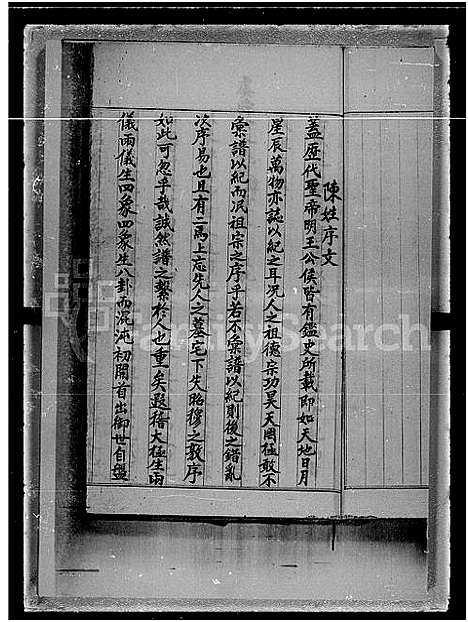 陳姓序文
蓋歷代聖帝明王公侯皆有鑑史所載即如天地日月
星辰萬物亦誌以紀之耳况人之祖德宗功昊天罔極敢不
彙譜以紀而况祖宗之序乎若不彙譜以紀則後之錯亂
次序易也且有二焉上忘先人之墓宅下失昭穆之数序
如此可忽乎哉誠然譜之繫於人也重矣遐稽太極生兩
儀兩儀生四象四象生八卦而混沌初開首出御世自盤
FamilySearch